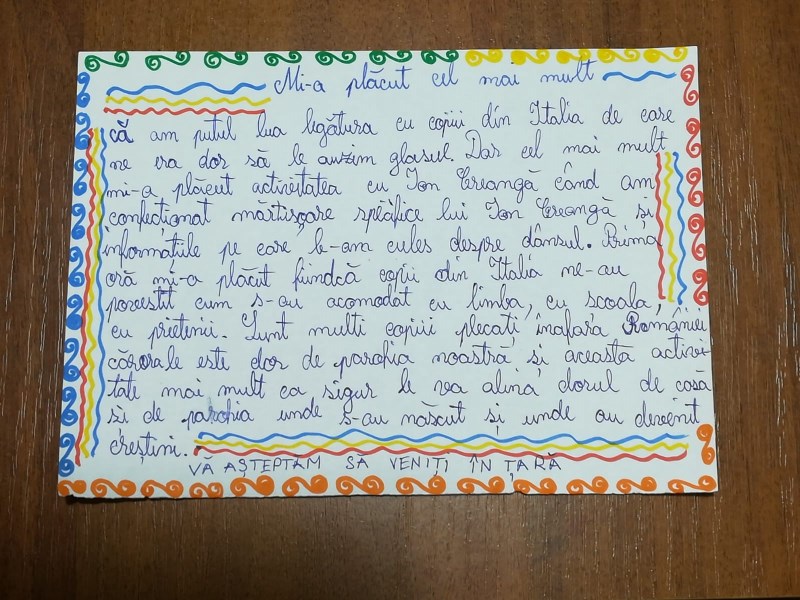 Mi-a plăcut cel mai mult
că am putut lua legătura cu copiii din Italia de care
ne era dor să le auzim glasul. Dar cel mai mult
mi-a plăcut activitatea cu Ion Creangă când am
confecționat mărtișoare speăfice lui Ion Creangă și
informațiile pe care le-am cules despre dânsul. Prima
oră mi-a plăcut fiindcă copiii din Italia ne-au
povestit cum s-au acomodat cu limba, cu școala,
cu prietenii. Sunt mulți copiii plecați înafara României
cărorale este dor de parohia noastră și aceasta activi-
tate mai mult ca sigur le va alina dorul de casă
și de parohia unde s-au născut și unde au devenit
creștini.
VA AȘTEPTAM SĂ VENIȚI ÎN ȚARĂ